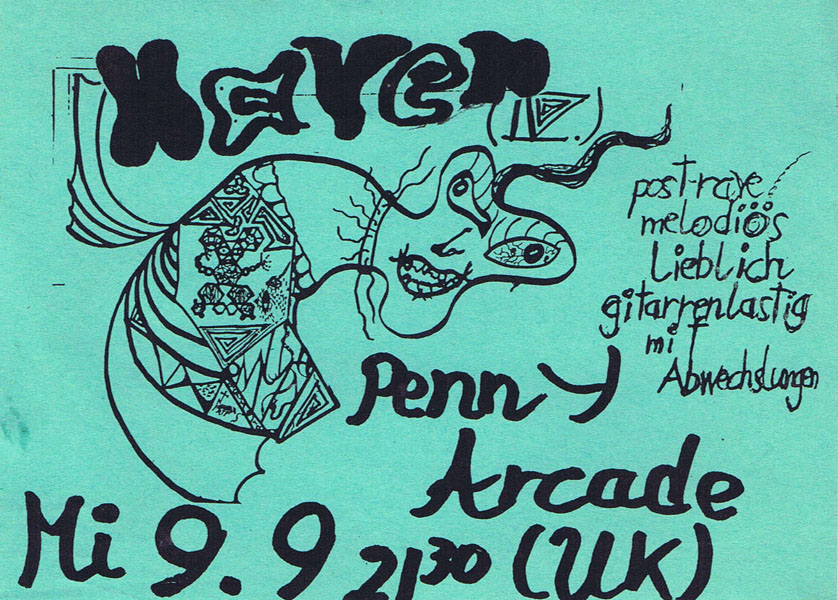 (IV.)
post-rave
melodiös
Lieblich
gitarrenlastig
mit
Abwechslungen
Penny
Arcade
Mi 9.9 21 30 (UK)